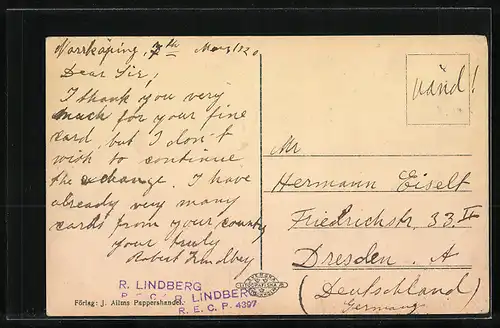 Norrköping, 7th May 1920
Dear Sir,
I thank you very
much for your fine
card, but I don't
wish to continue
the exchange. I have
already very many
cards from your country
your truly
Robert Lindberg
R. LINDBERG
R. E. C. R. LINDBERG
R. E. C. P. 4397
Förlag: J. Allms Pappershandel.
vänd!
Mr
Hermann Eiselt
Friedrichstr. 33 II
Dresden. A
(Deutschland)
Germany